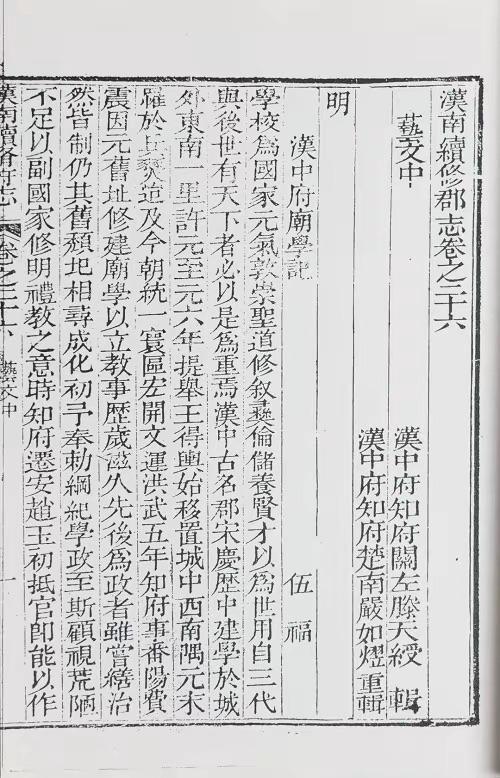 漢南續修郡志卷之二十六
藝文中
漢中府知府關左滕天綬 輯
漢中府知府楚南嚴如熤重輯
明
漢中府廟學記 伍福
學校為國家元氣敦崇聖道修叙彞倫儲養賢才以為世用自三代
與後世有天下者必以是為重焉漢中古名郡宋慶歷中建學於城
外東南一里許元至元六年提舉王得輿始移置城中西南隅元末
罹於兵燹迨及今朝統一寰區左開文運洪武五年知府事番陽費
震因元舊址修建廟學以立教事歷歲滋久先後為政者雖嘗繕治
然皆制仍其舊頹圮相尋成化初予奉勅綱紀學政至斯顧視荒陋
不足以副國家修明禮教之意時知府遷安趙玉初抵官即能以作
漢南續脩府志 卷之二十六 藝文中 一